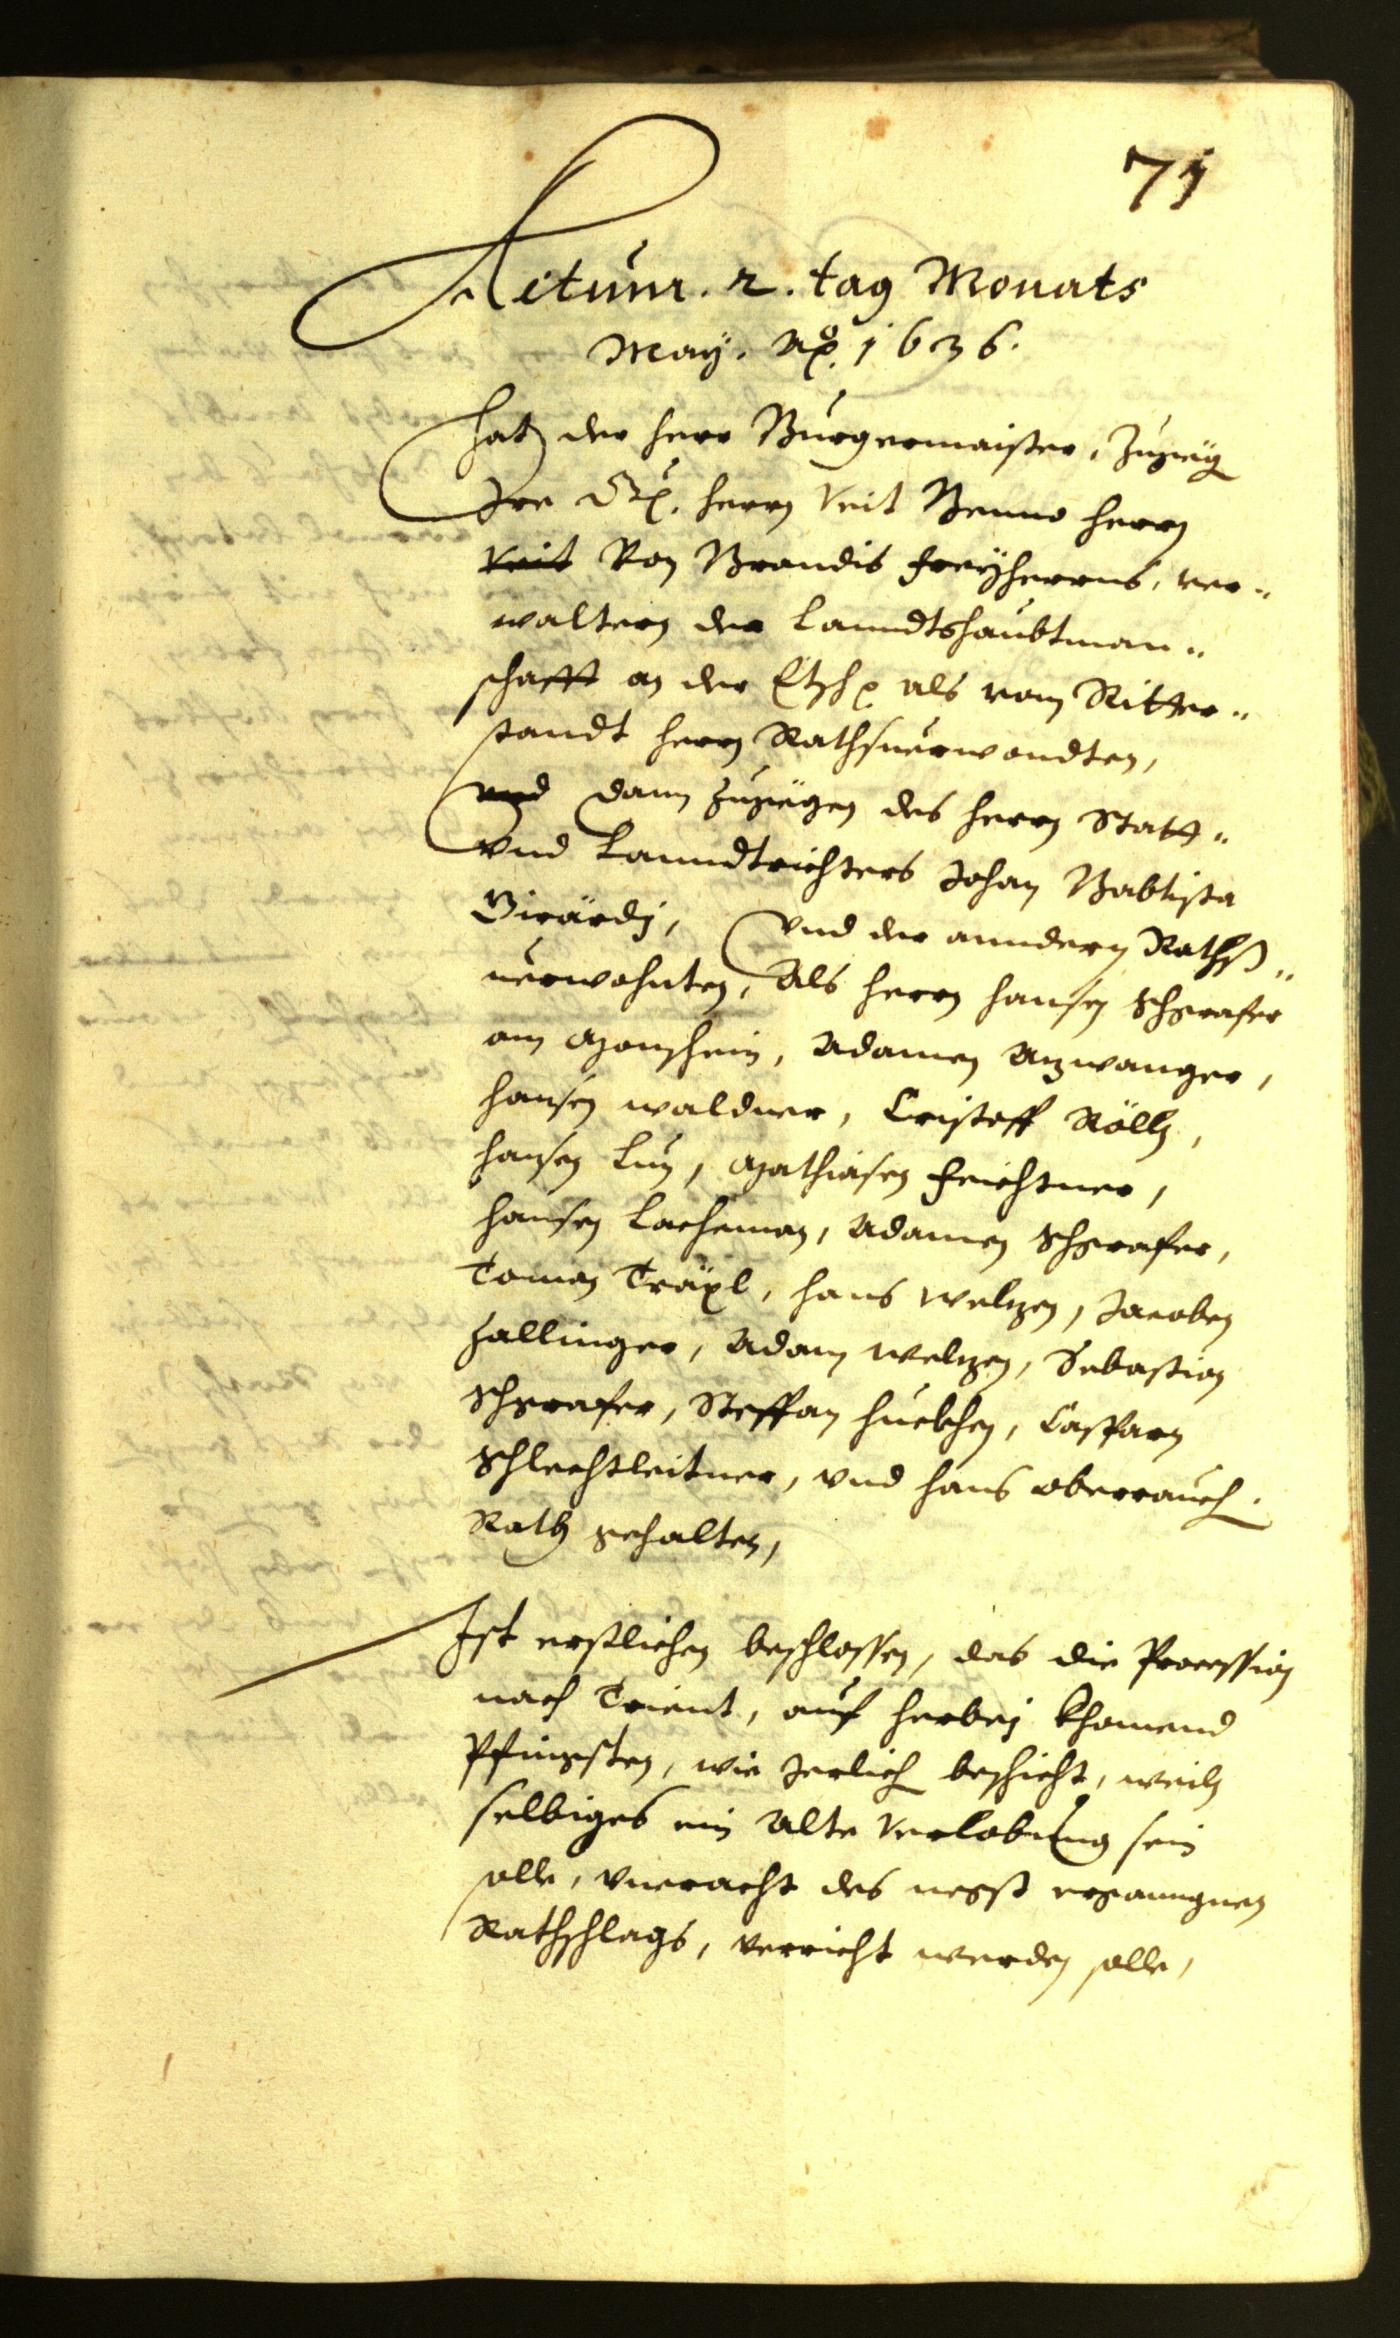 71
Actum. 2. tag Monats
May. Aõ. 1636.
hat der herr Burgermaister, Zuzieg
Ire Gn. herrn Veit Benno herrn
Veit Von Brandis freyherrns, ver¬
waltern der Lanndtshaubtman¬
schafft an der Etsch als vom Ritter¬
standt herrn Rathsuerwondten,
vnd dann zuziegen des herrn Statt¬
vnd Lanndtrichters Johan Babtista
Girardj, vnd der anndern Rathß¬
uerwohnten, Als herrn hansen Schgrafer
am Monschein, Adamen Anzwanger,
hansen waldner, Cristoff Röllj,
hansen Lun, Mathiasen Feichtner,
hansen Lacheman, Adamen Schgrafer,
Toman Träxl, hans Welzen, Jacoben
Zallinger, Adam Welzen, Sebastian
Schgrafer, Steffan huebhen, Casparn
Schlechtleitner, vnd hans oberrauch.
Rath gehalten,
Ist erstlichen beschlossen, das die Procession
nach Trient, auf herbej khomend
Pfingsten, wie Jerlich beschicht, weiln
selbiges ein Alte Verlobung sein
solle, vneracht des negst ergangnen
Rathschlags, verricht werden solle,